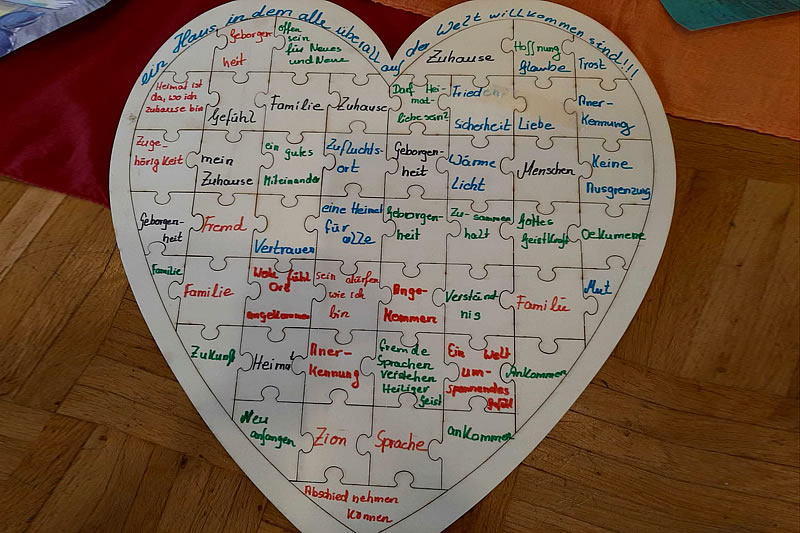 ein Haus in dem alle überall auf der Welt willkommen sind!!!
Geborgen
heit
offen
sein
für Neues
und Neue
Zuhause
Hoffnung
Glaube
Trost
Heimat ist
da, wo ich
zuhause bin
Gefühl
Familie
Zuhause
Darf Hei-
mat-
liche sein?
Frieden
Sicherheit
Liebe
Aner-
Kennung
Zuge-
hörigkeit
mein
Zuhause
ein gutes
Miteinander
Zufluchts-
ort
Geborgen-
heit
Wärme
Licht
Menschen
Keine
Ausgrenzung
Geborgen-
heit
Fremd
Vertrauen
eine Heimat
für
alle
Geborgen-
heit
Zu-sammen
halt
Gottes
Geistkraft
Oekumene
Familie
Familie
Wohl fühl
Ort
angekommen
sein dürfen
wie ich
bin
Ange-
Kommen
Verständ
nis
Familie
Mut
Zukunft
Heimat
Aner-
Kennung
fremde
Sprachen
verstehen
Heiliger
Geist
Ein Welt
um-
spannendes
Gefühl
Ankommen
Neu
anfangen
Zion
Sprache
ankommen
Abschied nehmen
können